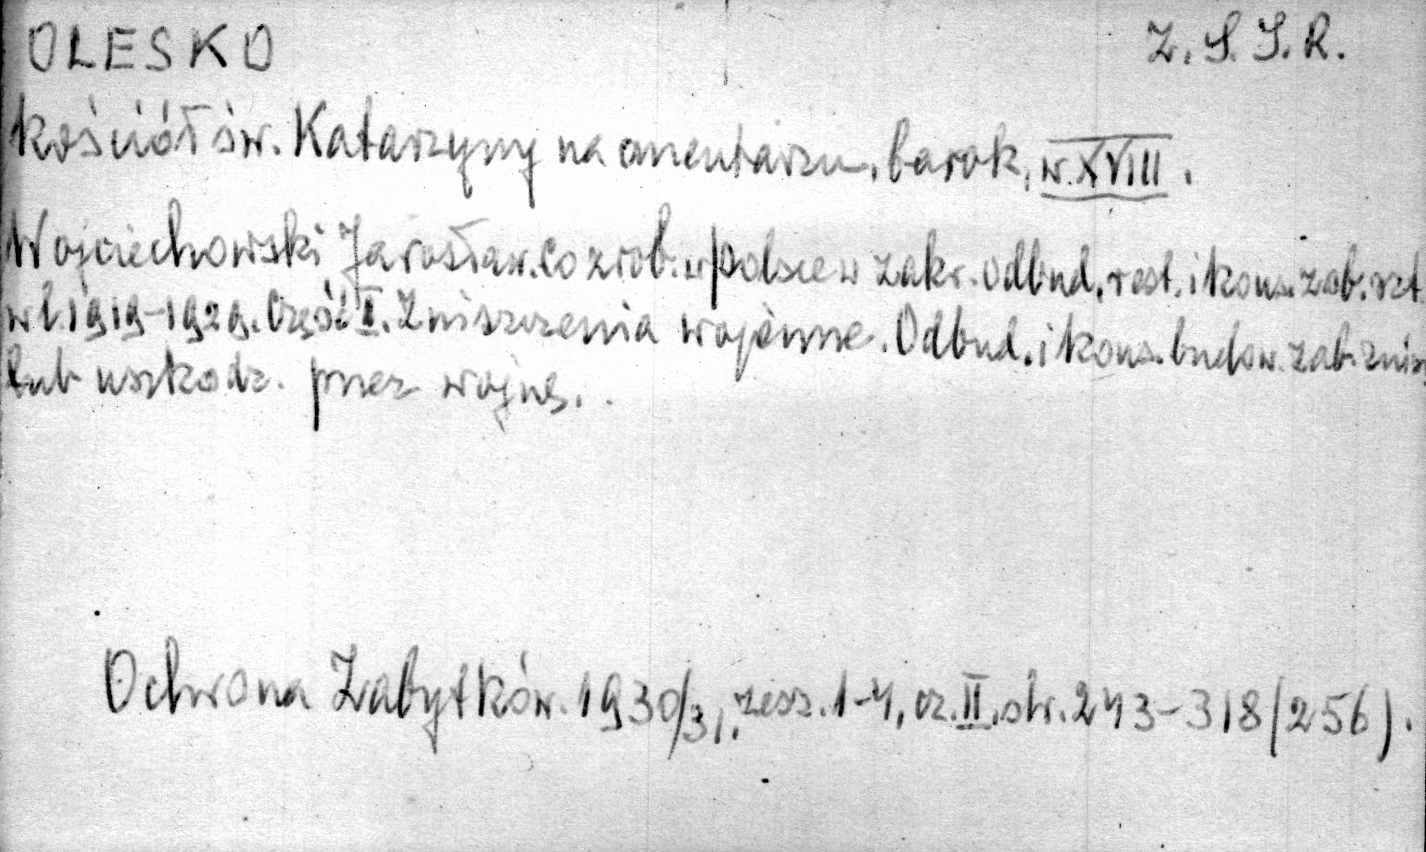 OLESKO Z.S.S.R.
Kościół św. Katarzyny na cmentarzu, barok, w. XVIII.
Wojciechowski Jarosław. Co zrob. w Polsce w zakr. odbud., rest. i kons. zab. szt.
w l. 1919-1929. Część II. Zniszczenia wojenne. Odbud. i kons. budow. zab. znisz
lub uszkodz. przez wojnę.
Ochrona Zabytków. 1930/31, zesz. 1-4, cz. II, str. 243-318 (256).